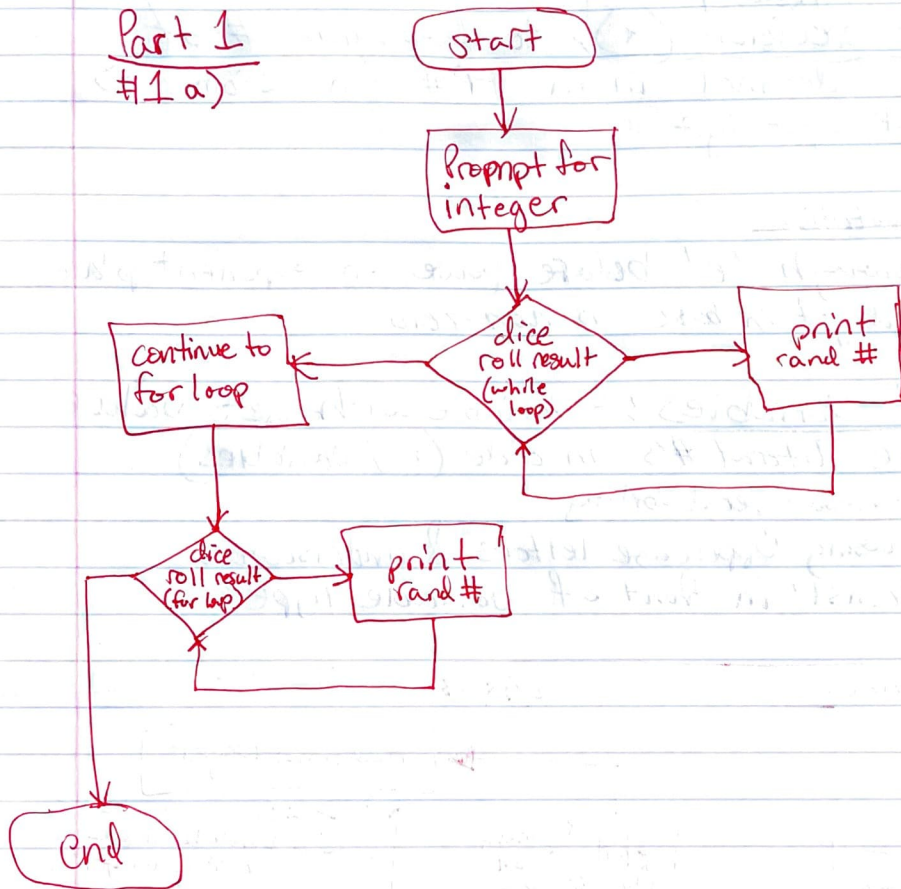 Part 1
#1 a)
start
Propnpt for
integer
dice
roll result
(while
loop)
print
rand #
continue to
for loop
dice
roll result
(for loop)
print
rand #
end